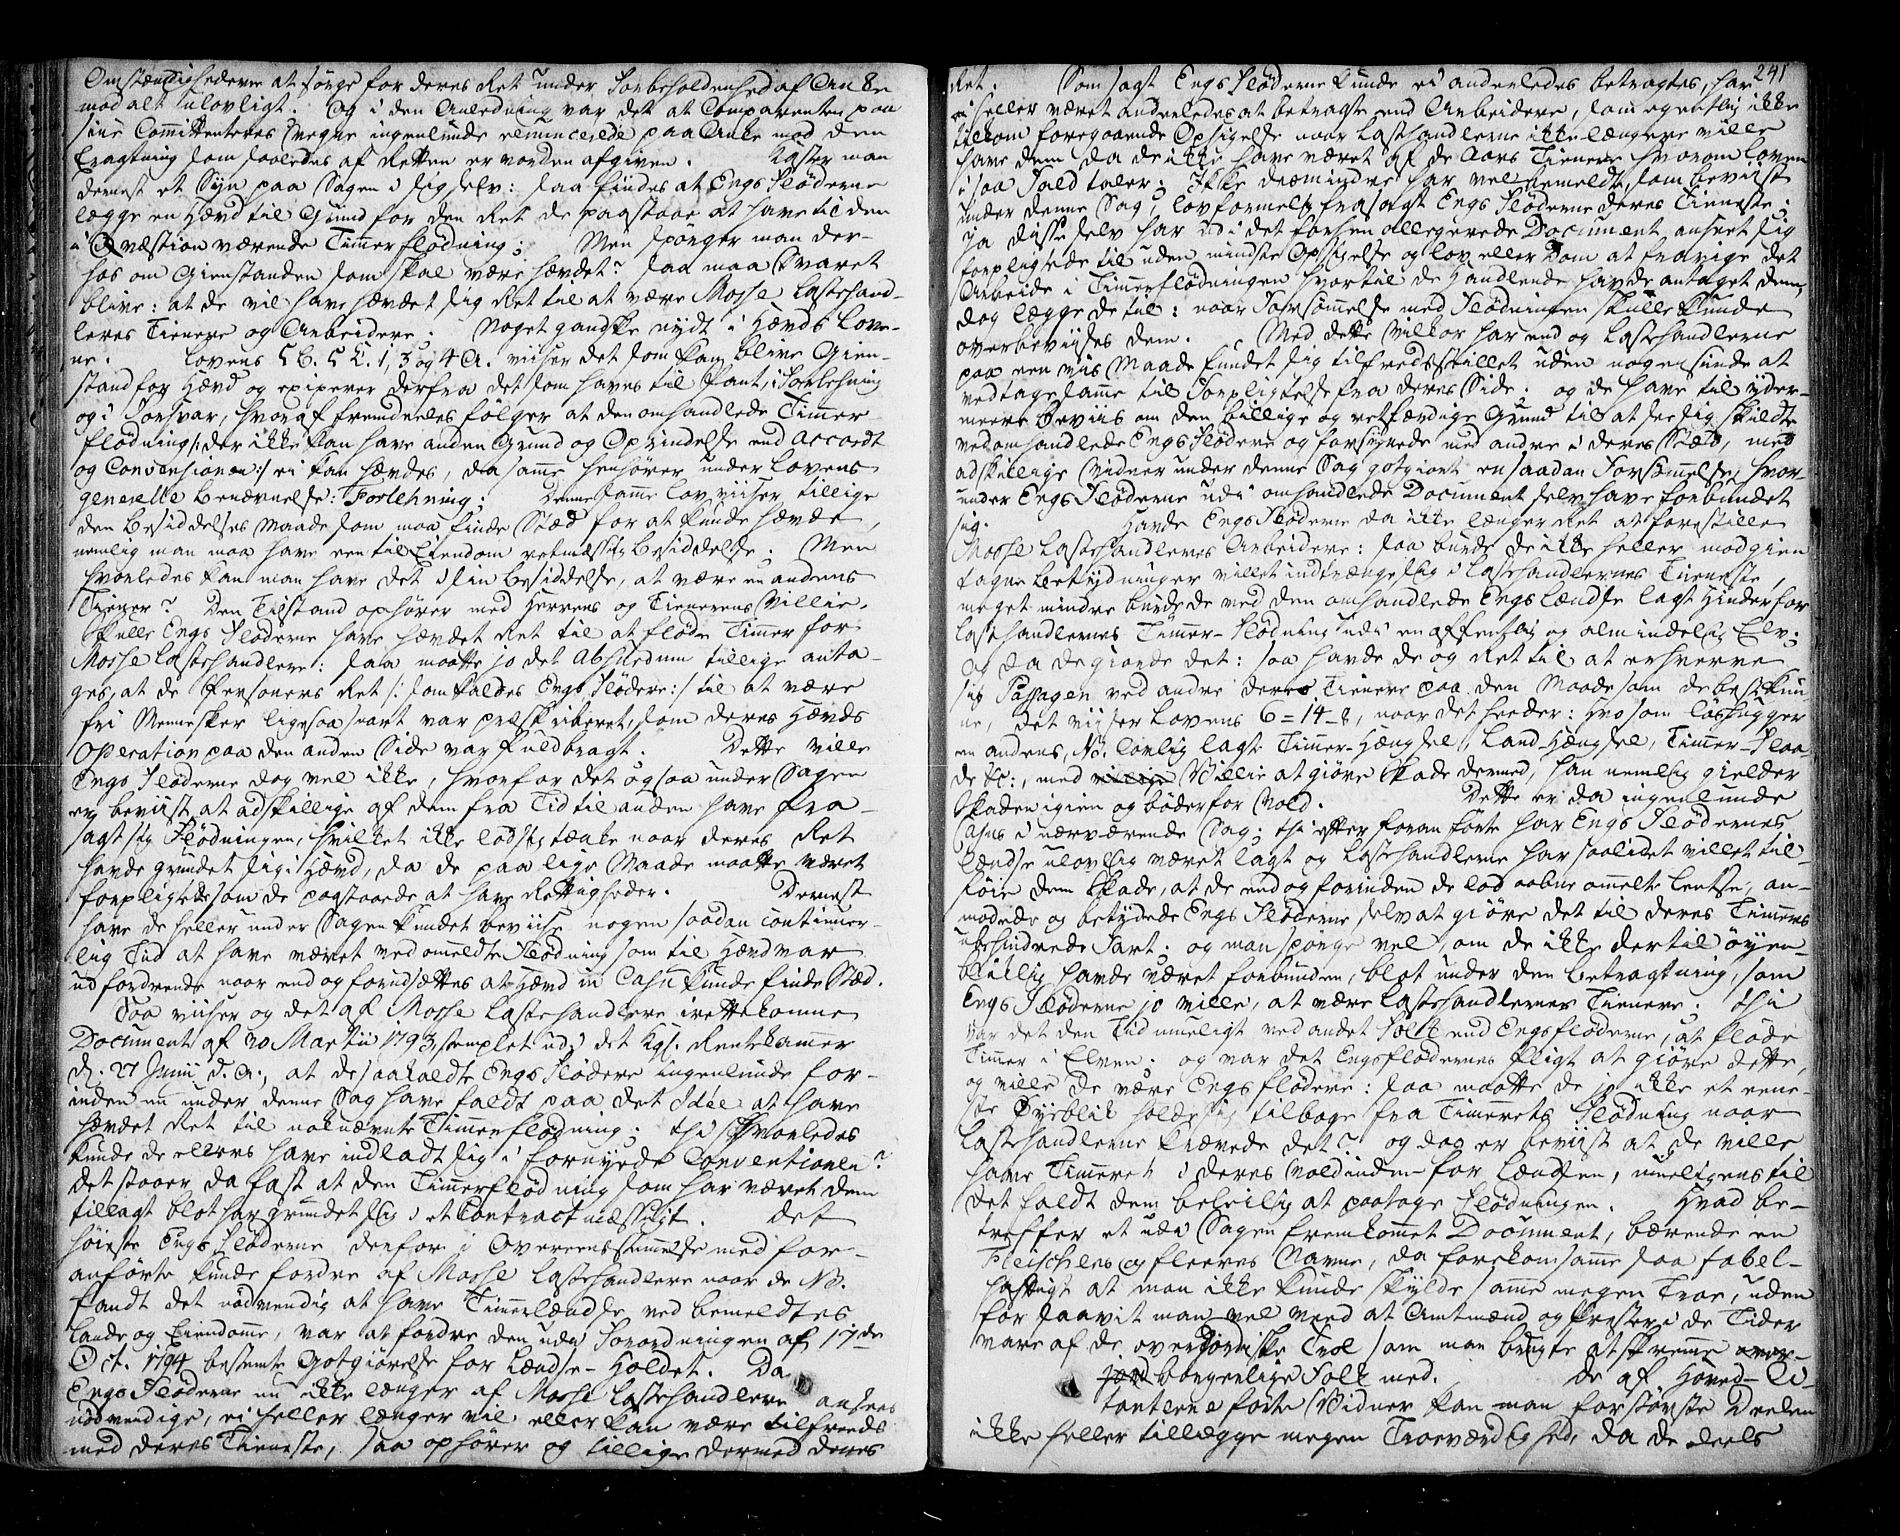 Omstændighederne at sørge for deres Ret under Forbeholdenhed af Anke
mod alt ulovligt. Og i den Anledning var det at Comparenten paa
sine Committenteres Vegne ingenlunde renuncerede paa Anke mod den
Eragtning som saaledes af Retten er vorden afgiven. Kaster man
dernest et Syn paa Sagen i sig selv: saa findes at Engs Fløderne
legge en Hævd til Grund for den Ret de paastaae at have til den
i Qvæstion værende Timmerflødning; Men spørger man der-
hos om Gienstanden som skal være hævdet? saa maa Svaret
blive: at de vil have hævdet sig Ret til at være Mosse Lastehand-
leres Tienere og Arbeidere. Noget gandske nydt i Hævds Love-
ne. Lovens 5 B. 5 C. 1, 3 og 4 A. viiser det som kan blive Gien-
stand for Hævd og eximerer derfra det som haves til Pant, i Forlehning
og i Forsvar, hvoraf fremdeeles følger at den omhandlede Timmer
flødning /: der ikke kan have anden Grund og Oprindelse end Accordt
og Conventionen :/ ei kan hævdes, da samme henhører under Lovens
generelle Benævnelse: Forlehning; Denne samme Lov viiser tillige
den Besiddelses Maade som maa finde Sted for at kunde hævde,
nemlig man maa have een til Eiendom retmæssig Besiddelse. Men
hvorledes kan man have det i sin Besiddelse, at være en andens
Tiener? Den Tilstand ophører med Herrens og Tienerens Villie.
Skulle Engs Fløderne have hævdet Ret til at fløde Timmer for
Mosse Lastehandlere: saa maatte jo det Absurdum tillige anta-
ges, at de Personers Ret /: som kaldes Engs Flødere :/ til at være
fri Mennesker ligesaasnart var præskriberet, som deres Hævds
Operation paa den anden Side var fuldbragt. Dette ville
Engs Fløderne dog vel ikke, hvorfor det ogsaa under Sagen
er beviist at adskillige af dem fra Tid til anden have fra-
sagt sig Flødningen, hvilket ikke lod sig tænke naar deres Ret
havde grundet sig i Hævd, da de paa lige Maade maatte været
forpligtede som de paastaaede at have Rettigheder. Dernest
have de heller under Sagen kundet beviise nogen saadan continuer-
lig Tid at have været ved ommeldte Flødning som til Hævd var
udfordrende naar end og forudsættes at Hævd in Casu kunde finde Sted.
Saa viiser og det af Mosse Lastehandlere irettekomne
Document af 30 Martii 1793, stemplet udi det Kgl. Rentekammer
d. 27 Junii d. A., at de saakaldte Engs Flødere ingenlunde for-
inden nu under denne Sag have faldt paa det Idee at have
hævdet Ret til nuknævnte Timmerflødning; thi hvorledes
kunde de ellers have indladt sig i fornyede Conventioner?
Det staaer da fast at den Timmerflødning som har været dem
tillagt blot har grundet sig i et Contractmæssigt. Det
høieste Engs Fløderne derfor i Overeensstemmelse med for-
anførte kunde fordre af Mosse Lastehandlere naar de No.
fandt det nødvendig at have Timmerlændse ved bemeldtes
Lande og Eiendomme, var at fordre den udi Forordningen af 17de
Oct. 1794 bestemte Godtgiørelse for Lændse-Holdet. Da
Engs Fløderne nu ikke længer af Mosse Lastehandlere ansees
nødvendige, ei heller længer vil eller kan være tilfreds
med deres Tieneste, saa ophører og tillige dermed deres
241
Ret. Som sagt Engs Fløderne kunde ei anderledes betragtes, har
ei heller været anderledes at betragte end Arbeidere, som egentlig ikke
tilkom foregaaende Opsigelse naar Lastehandlerne ikke længere ville
have dem da de ikke have været af de Aars Tienere hvorom Loven
i saa Fald taler; Ikke desmindre har velbemeldte, som beviist
under denne Sag, lovformelig frasagt Engs Fløderne deres Tieneste;
Ja disse selv har udi det forhen allegerede Document anseet sig
forpligtede til uden mindste Opsigelse og Lov eller Dom at fravige det
Arbeide i Timmerflødningen hvortil de Handlende havde antaget dem,
dog lægge de til: naar Forsømmelse med Flødningen skulle kunde
overbeviises dem. Med dette Vilkor har end og Lastehandlerne
paa een vis Maade fundet sig tilfredsstillet uden nogensinde at
vedtage samme til Forpligtelse fra deres Side. og de have til yder-
meere Beviis om den billige og retfærdige Grund til at see sig skildte
ved omhandlede Engs Flødere og forsynede med andre i deres Sted, med
adskillige Vidner under denne Sag godtgiort en saadan Forsømmelse, hvor-
under Engs Fløderne udi omhandlede Document selv have forbundet
sig. Havde Engs Fløderne da ikke længer Ret at forestille
Mosse Lastehandleres Arbeidere: saa burde de ikke heller mod gien
tagne Betydninger villet indtrænge sig i Lastehandlernes Tieneste,
meget mindre burde de ved den omhandlede Engs Lændse lagt Hinder for
Lastehandlernes Timmer-Flødning udi en offentlig og almindelig Elv;
Og da de giorde det: saa havde de og Ret til at erhverve
sig Passagen ved andre deres Tienere paa den Maade som de best kun-
ne, det viiser Lovens 6=14-8, naar det heeder: Hvo som løshugger
en andens, No. lovlig lagte Timmer-Hængsel, Land-Hængsel, Timmer-Flaa
de &c:, med Villie at giøre Skade dermed, han nemlig gielder
Skaden igien og bøder for Vold. Dette er da ingenlunde
Casus i nærværende Sag; thi efter foran førte har Engs Flødernes
Lændse ulovlig været lagt og Lastehandlerne har saalidet villet til-
føie dem Skade, at de end og forinden de lod aabne ommelte Lentse, an-
modede og betydede Engs Fløderne selv at giøre det til deres Timmers
uhindrede Fart; og man spørge vel, om de ikke dertil øyen-
blikkelig havde været forbunden, blot under den Betragtning, som
Engs Fløderne jo ville, at være Lastehandlernes Tienere. Thi
var det den Tid mueligt ved andet Folk end Engsfløderne, at fløde
Timmer i Elven; og var det Engsflødernes Pligt at giøre dette,
og ville de være Engsflødere: saa maatte de jo ikke et eene-
ste Øyeblik holde sig tilbage fra Timmerets Flødning naar
Lastehandlerne krævede det? og dog er beviist at de ville
have Timmeret i deres Vold inden for Lændsen, mueligens til
det faldt dem beleilig at paatage Flødningen. Hvad be-
treffer et udi Sagen fremkommet Document, bærende en
Fleischers og fleeres Navne, da forekom samme saa fabel-
hagtigt at man ikke kunde skylde samme megen Troe, uden
for saavit man vel veed at Amtmænd og Præster i de Tider
vare af de overjordiske Trol som man brugte at skremme
borgerlige Folk med. De af Hoved-Ci-
tanterne førte Vidner kan man for største Deelen
ikke heller tillægge megen Troeværdighed, da de deels